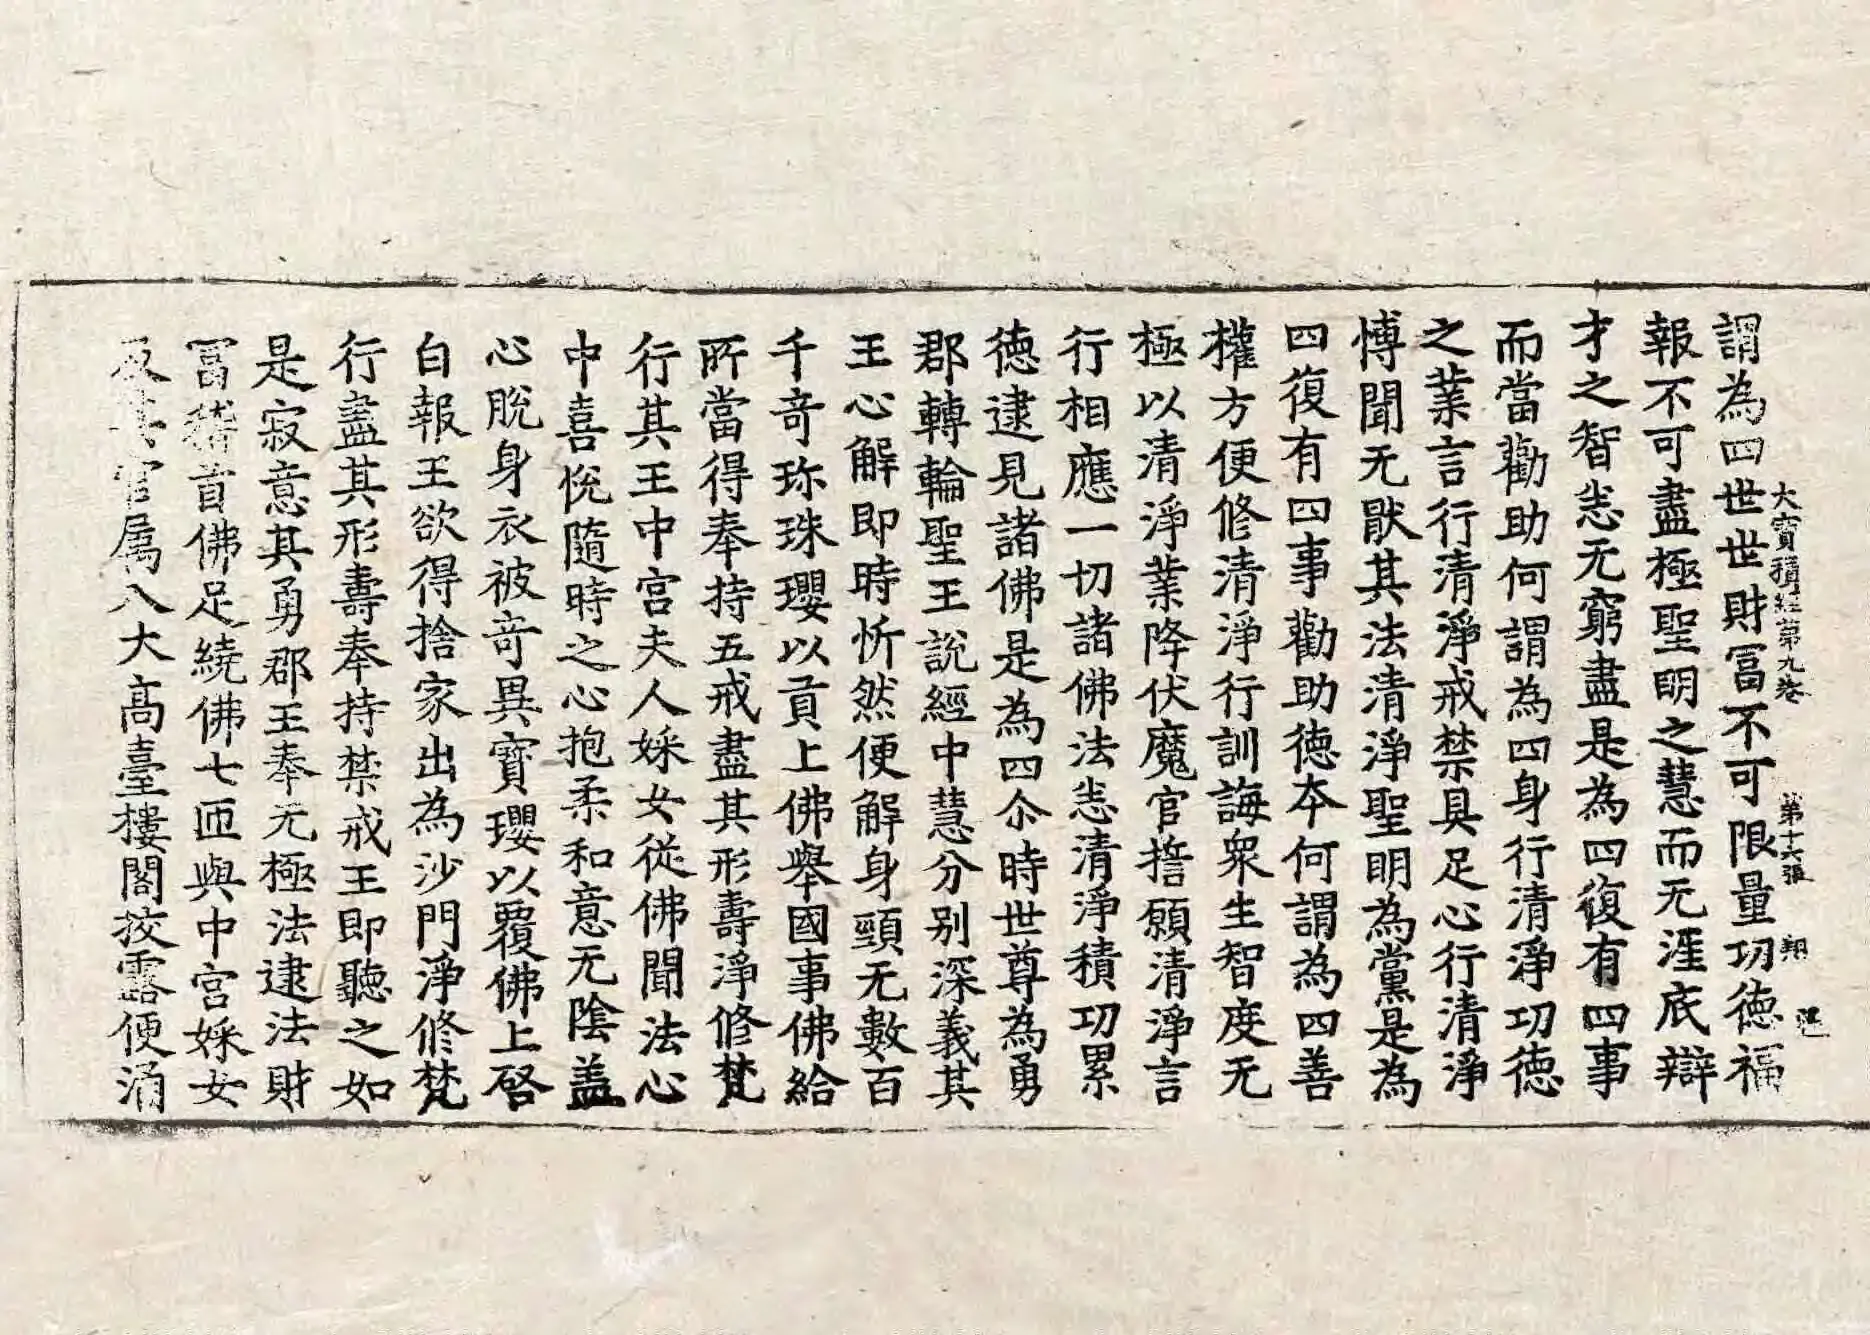 大寶積經第九卷 第十六張 翔
謂為四世世財冨不可限量功德福
報不可盡極聖明之慧而无涯底辯
才之智悉无窮盡是為四復有四事
而當勸助何謂為四身行清淨功德
之業言行清淨戒禁具足心行清淨
博聞无猒其法清淨聖明為黨是為
四復有四事勸助德本何謂為四善
權方便修清淨行訓誨衆生智度无
極以清淨業降伏魔官誓願清淨言
行相應一切諸佛法悉清淨積功累
德逮見諸佛是為四尒時世尊為勇
郡轉輪聖王說經中慧分别深義其
王心解即時忻然便解身頸无數百
千竒珎珠瓔以貢上佛舉國事佛給
所當得奉持五戒盡其形壽淨修梵
行其王中宮夫人婇女從佛聞法心
中喜悅隨時之心抱柔和意无陰盖
心脫身衣被竒異寶瓔以覆佛上啓
白報王欲得捨家出為沙門淨修梵
行盡其形壽奉持禁戒王即聽之如
是寂意其勇郡王奉无極法逮法財
冨稽首佛足繞佛七匝與中宮婇女
及其官屬八大高臺樓閣挍露便涌